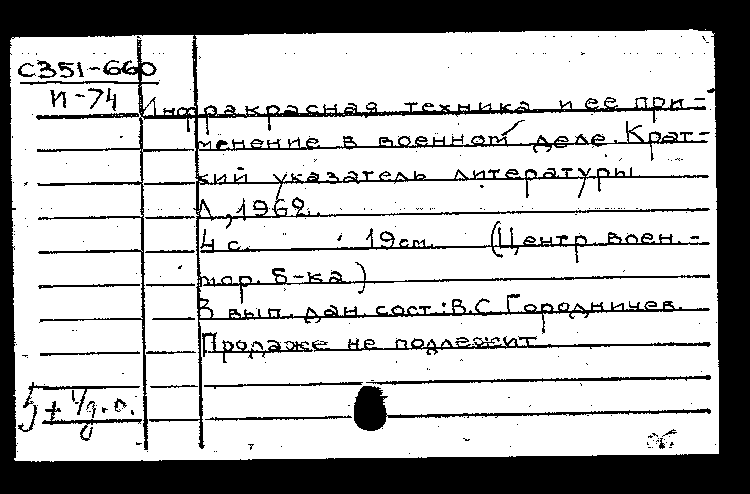 С351-660
И-74
Инфракрасная техника и ее при-
менение в военном деле. Крат-
кий указатель литературы
Л., 1962.
4 с. 19 см. (Центр. воен.-
мор. б-ка)
В вып. дан. сост.: В.С. Городничев.
Продаже не подлежит.
5 + 1/д.о.